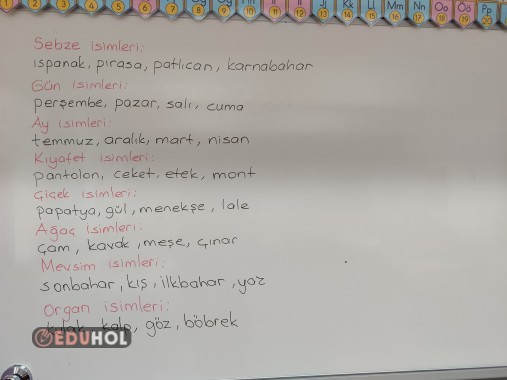 Mm Nn Oo Öö Pp
7 8 9 10 11 12 13 14 15 16 17 18 19 20
Sebze isimleri:
ıspanak, pırasa, patlıcan, karnabahar
Gün isimleri:
perşembe, pazar, salı, cuma
Ay isimleri:
temmuz, aralık, mart, nisan
Kıyafet isimleri:
pantolon, ceket, etek, mont
Çiçek isimleri:
papatya, gül, menekşe, lale
Ağaç isimleri:
çam, kavak, meşe, çınar
Mevsim isimleri:
sonbahar, kış, ilkbahar, yaz
Organ isimleri:
kalp, göz, böbrek
EDUHOL